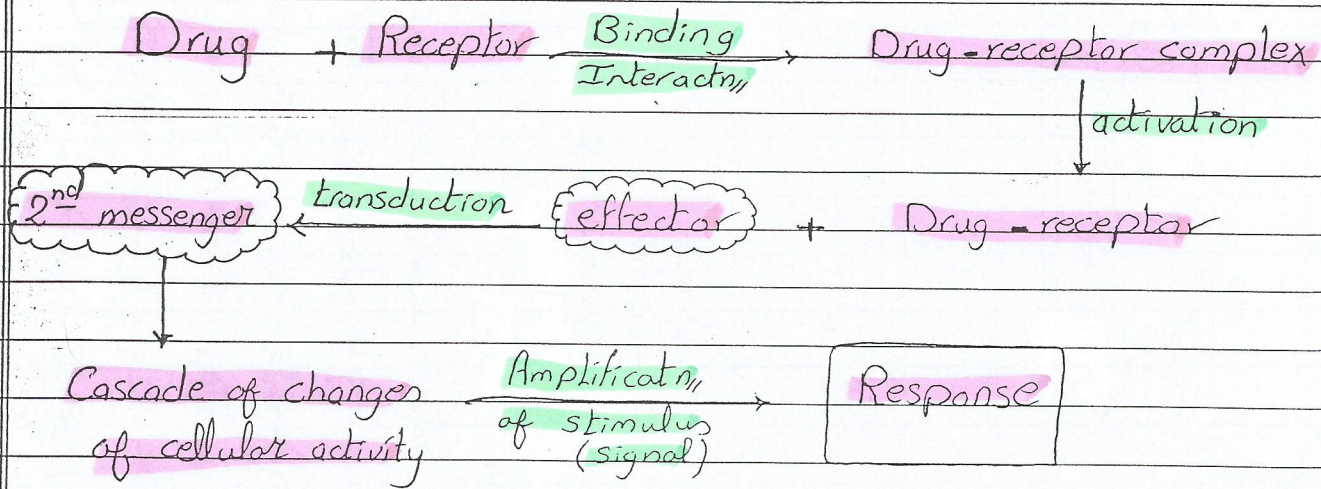 Drug + Receptor Binding Interactn,, Drug-receptor complex
activation
2nd messenger transduction effector + Drug-receptor
Cascade of changes of cellular activity Amplificatn,, of stimulus (signal) Response